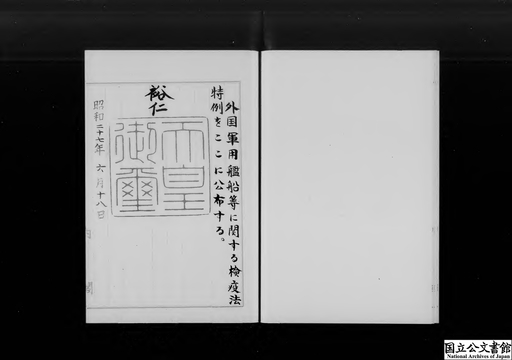 外国軍用艦船等に関する検疫法
特例をここに公布する。
裕仁
天皇
御璽
昭和二十七年 六月十八日
国立公文書館
National Archives of Japan